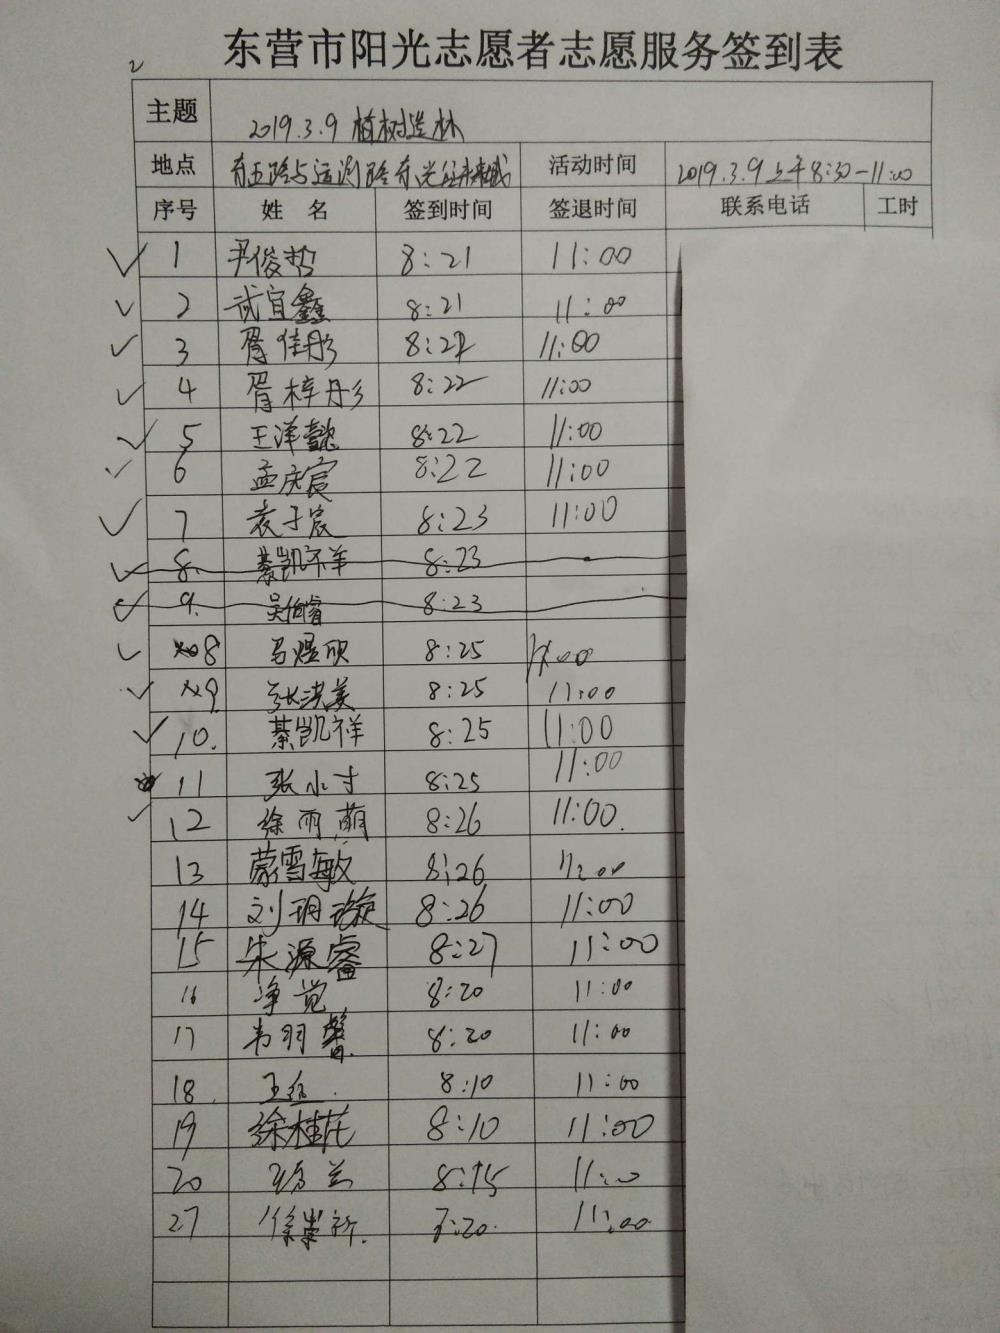 东营市阳光志愿者志愿服务签到表
2
主题 2019.3.9 植树造林
地点 东 活动时间 2019.3.9上午8:30-11:00
序号 姓名 签到时间 签退时间 联系电话 工时
1 尹俊哲 8:21 11:00
2 武宜鑫 8:21 11:00
3 胥佳彤 8:22 11:00
4 胥梓彤 8:22 11:00
5 王洋懿 8:22 11:00
6 孟庆宸 8:22 11:00
7 袁子宸 8:23 11:00
8. 綦凯祥 8:23
9. 吴伯睿 8:23
8 马煜欣 8:25 11:00
9 张洪美 8:25 11:00
10. 綦凯祥 8:25 11:00
11 张小寸 8:25 11:00
12 徐雨萌 8:26 11:00.
13 蒙雪敏 8:26 11:00
14 刘玥璇 8:26 11:00
15 朱源睿 8:27 11:00
16 净觉 8:20 11:00
17 韦羽 8:20 11:00
18. 王 8:10 11:00
19 徐桂花 8:10 11:00
20 兰 8:15 11:00
21 徐崇新. 7:20. 11:00